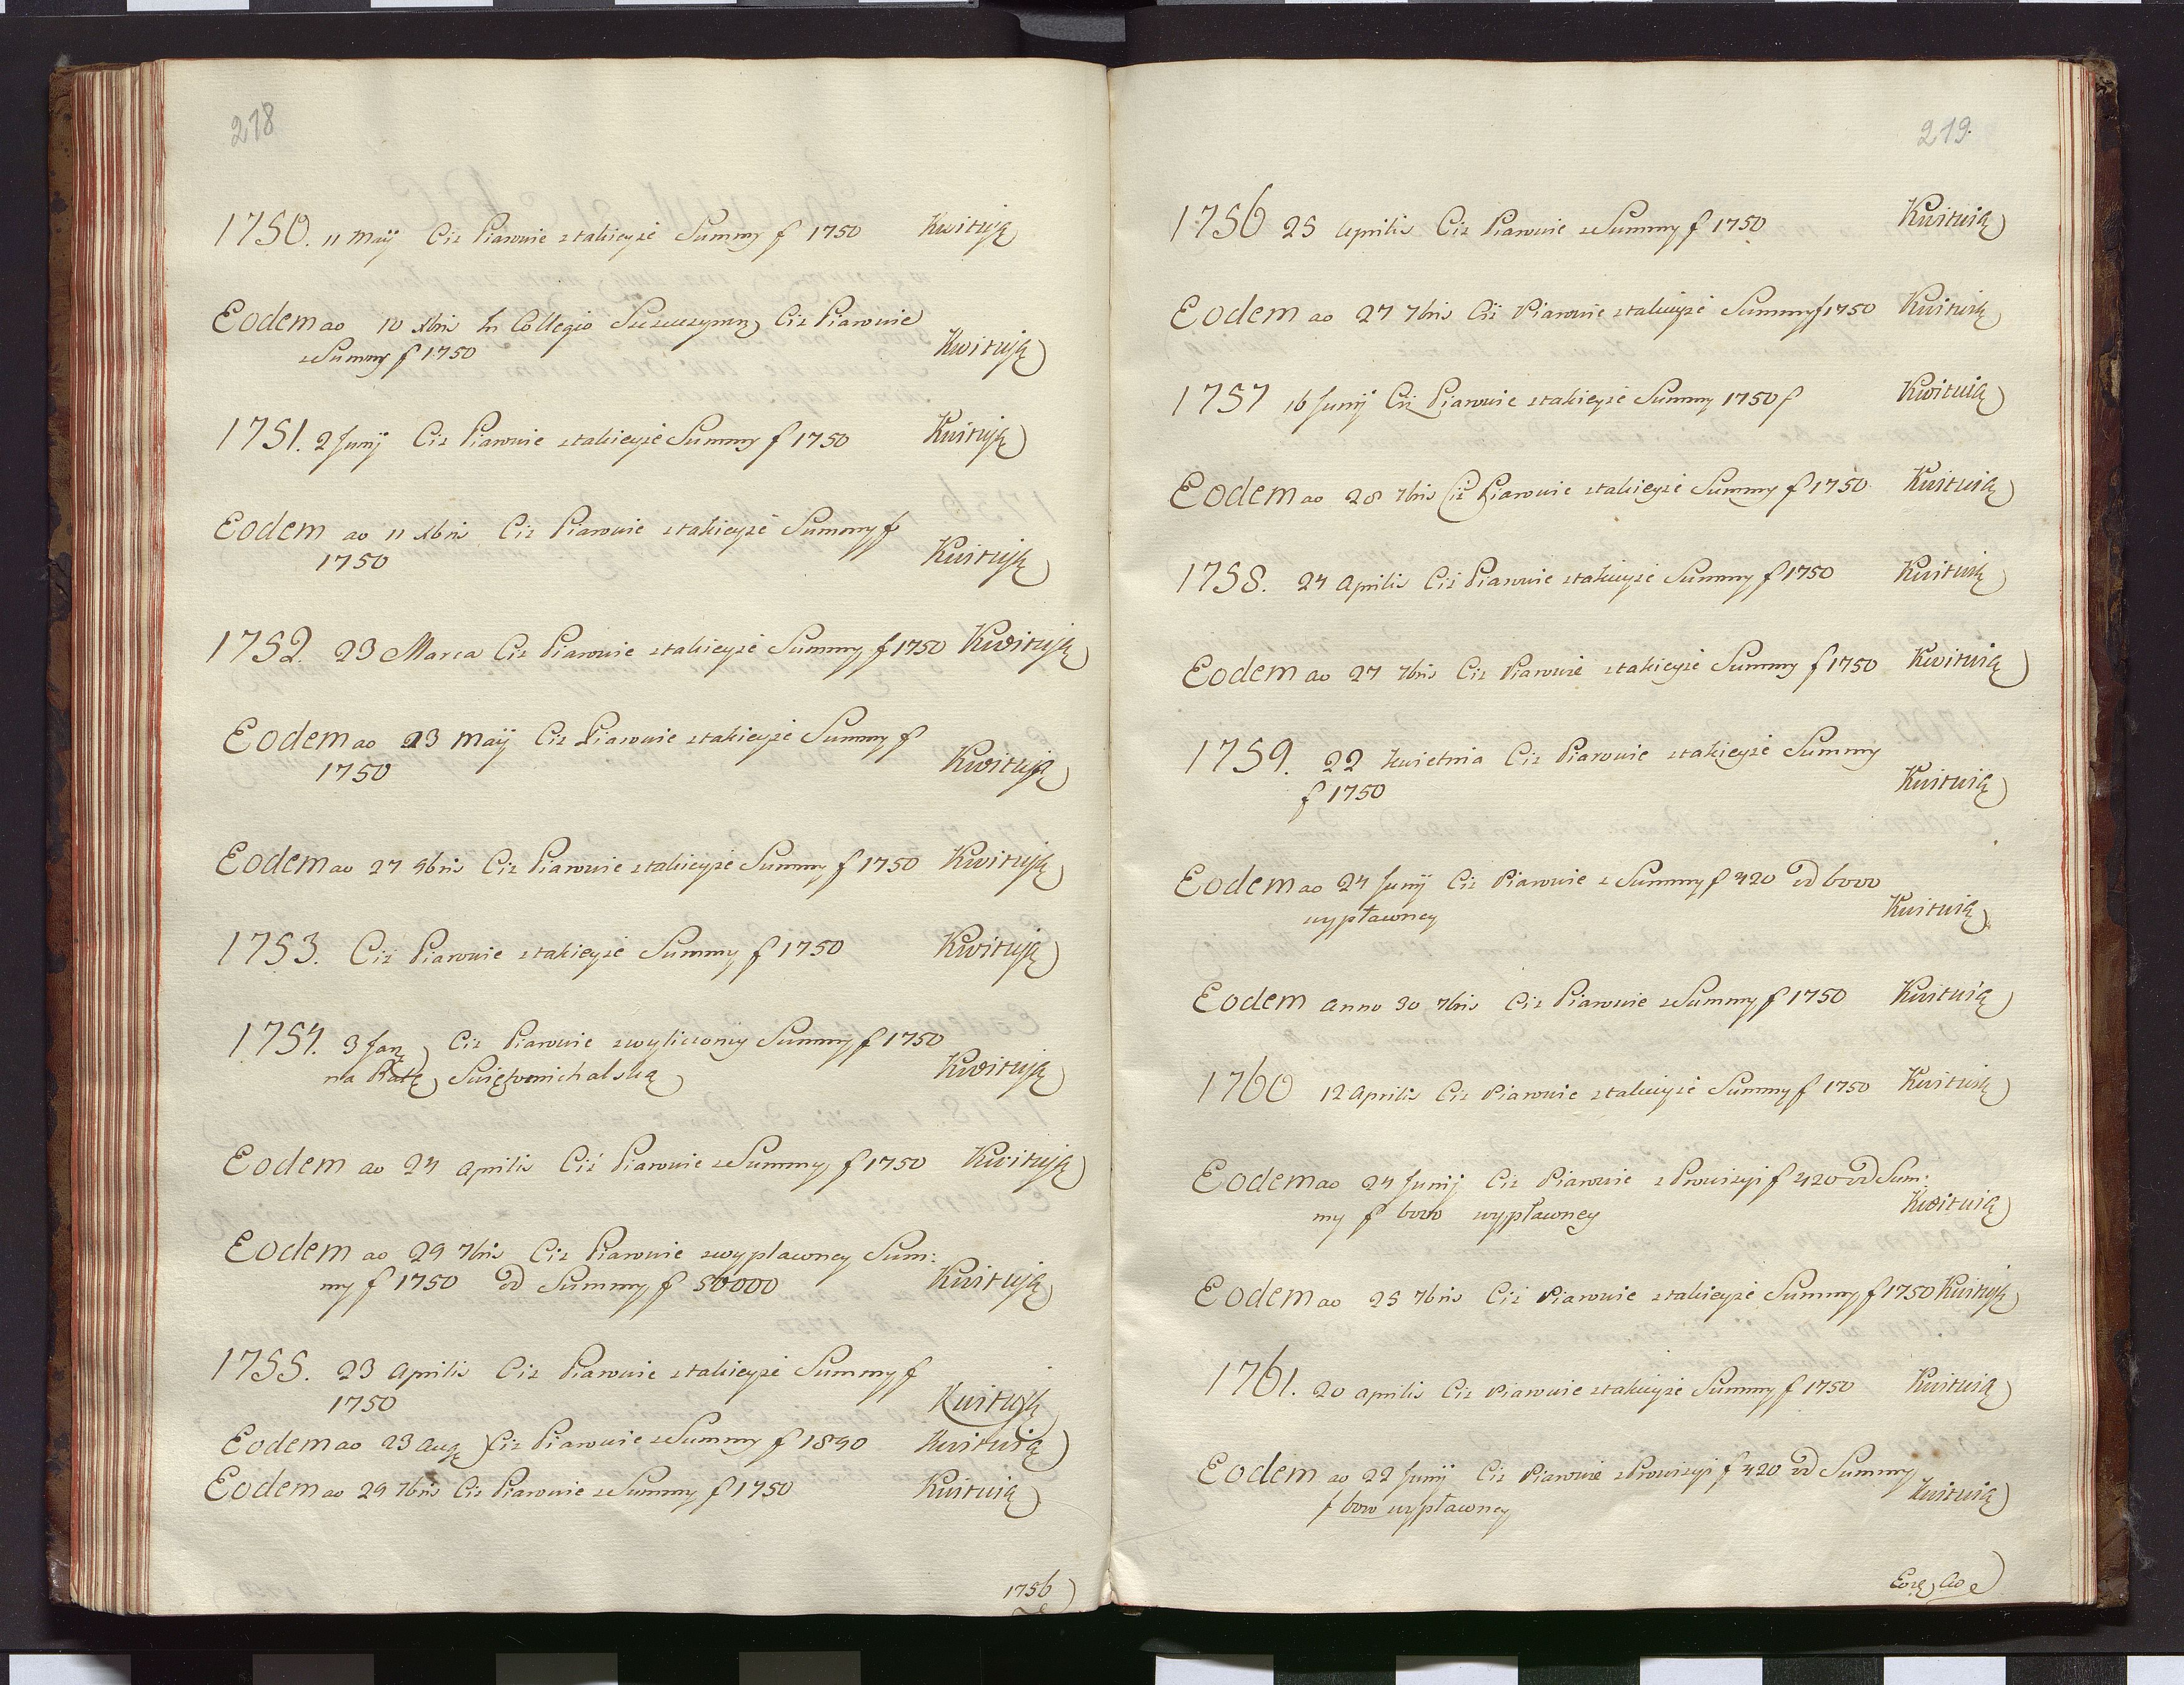 218
1750. 11 Maij Ciż Piarowie z takieyże Summy f 1750 Kwituią
Eodem ao 10 Xbris In Collegio Szczuczynen Ciż Piarowie
z Summy f 1750 Kwituią
1751. 2 Junij Ciż Piarowie z takieyże Summy f 1750 Kwituią
Eodem ao 11 Xbris Ciż Piarowie z takieyże Summy f
1750 Kwituią
1752. 23 Marca Ciż Piarowie z takieyże Summy f 1750 Kwituią
Eodem ao 23 Maij Ciż Piarowie z takieyże Summy f
1750 Kwituią
Eodem ao 27 9bris Ciż Piarowie z takieyże Summy f 1750 Kwituią
1753. Ciż Piarowie z takieyże Summy f 1750 Kwituią
1754. 3 Jan Ciż Piarowie z wyliczoney Summy f 1750
na Ratę Swiętomichalską Kwituią
Eodem ao 24 Aprilis Ciż Piarowie z Summy f 1750 Kwituią
Eodem ao 29 7bris Ciż Piarowie z wypłaconey Sum:
my f 1750 od Summy f 50000 Kwituią
1755. 23 Aprilis Ciż Piarowie z takieyże Summy f
1750 Kwituią
Eodem ao 23 Aug Ciż Piarowie z Summy f 1890 Kwituią
Eodem ao 29 7bris Ciż Piarowie z Summy f 1750 Kwituią
1756
219.
1756 25 Aprilis Ciż Piarowie z Summy f 1750 Kwituią
Eodem ao 27 7bris Ciż Piarowie z takieyże Summy f 1750 Kwituią
1757 16 Junij Ciż Piarowie z takieyże Summy 1750 f Kwituią
Eodem ao 28 7bris Ciż Piarowie z takieyże Summy f 1750 Kwituią
1758. 24 Aprilis Ciż Piarowie z takieyże Summy f 1750 Kwituią
Eodem ao 27 7bris Ciż Piarowie z takieyże Summy f 1750 Kwituią
1759. 22 kwietnia Ciż Piarowie z takieyże Summy
f 1750 Kwituią
Eodem ao 24 Junij Ciż Piarowie z Summy f 420 od 6000
wypłaconey Kwituią
Eodem anno 30 7bris Ciż Piarowie z Summy f 1750 Kwituią
1760 12 Aprilis Ciż Piarowie z takieyże Summy f 1750 Kwituią
Eodem ao 24 Junij Ciż Piarowie z Prowizyi f 420 od Sum:
my f 6000 wypłaconey Kwituią
Eodem ao 25 7bris Ciż Piarowie z takieyże Summy f 1750 Kwituią
1761. 20 aprilis Ciż Piarowie z takieyże Summy f 1750 Kwituią
Eodem ao 22 Junij Ciż Piarowie z Prowizyi f 420 od Summy
f 6000 wypłaconey Kwituią